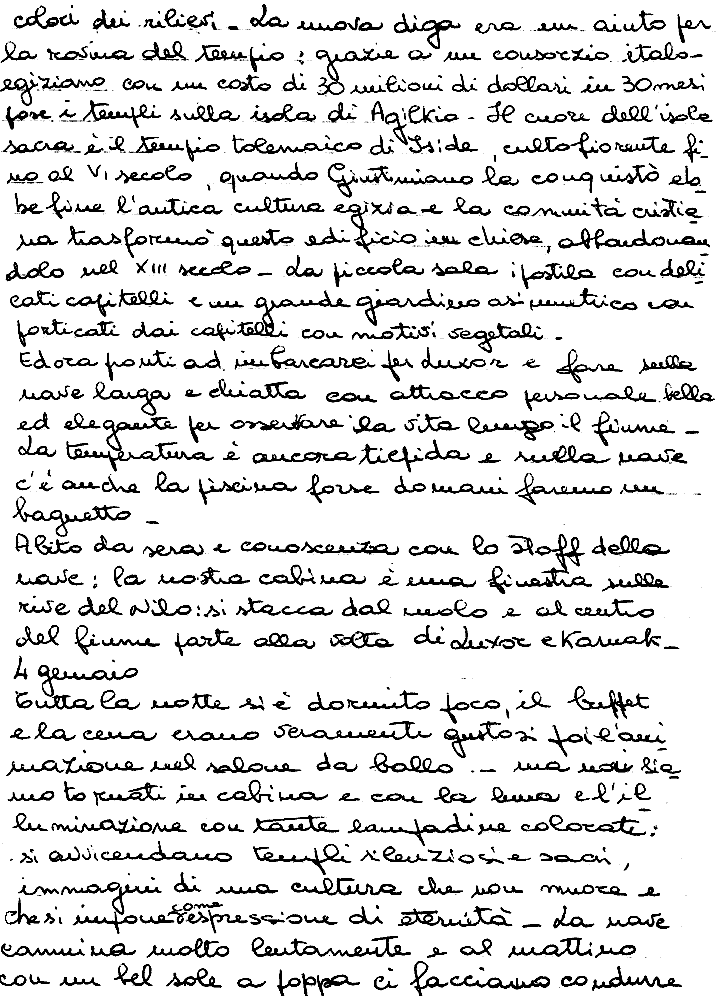 colori dei rilievi - La nuova diga era un aiuto per
la rovina del tempio: grazie a un consorzio italo-
egiziano con un costo di 30 milioni di dollari in 30 mesi
pose i templi sulla isola di Agilkio - Il cuore dell'isola
sacra è il tempio tolemaico di Iside, culto fiorente fi-
no al VI secolo, quando Giustiniano la conquistò eb
be fine l'antica cultura egizia e la comunità cristia
na trasformò questo edificio in chiesa, abbandonan
dolo nel XIII secolo - La piccola sala ipostila con deli
cati capitelli e un grande giardino asimmetrico con
porticati dai capitelli con motivi vegetali.
Ed ora pronti ad imbarcarci per Luxor e fare sulla
nave larga e chiatta con attracco personale bella
ed elegante per osservare la vita lungo il fiume -
La temperatura è ancora tiepida e sulla nave
c'è anche la piscina forse domani faremo un
bagnetto -
Abito da sera e conoscenza con lo staff della
nave: la nostra cabina è una finestra sulle
rive del Nilo: si stacca dal molo e al centro
del fiume parte alla volta di Luxor e Karnak -
4 gennaio
Tutta la notte si è dormito poco, il buffet
e la cena erano veramente gustosi poi l'ani
mazione nel salone da ballo - ma noi sia
mo tornati in cabina e con la luna e l'il
luminazione con tante lampadine colorate:
si avvicendano templi silenziosi e sacri,
immagini di una cultura che non muore e
che si impone come espressione di eternità - La nave
cammina molto lentamente e al mattino
con un bel sole a poppa ci facciamo condurre